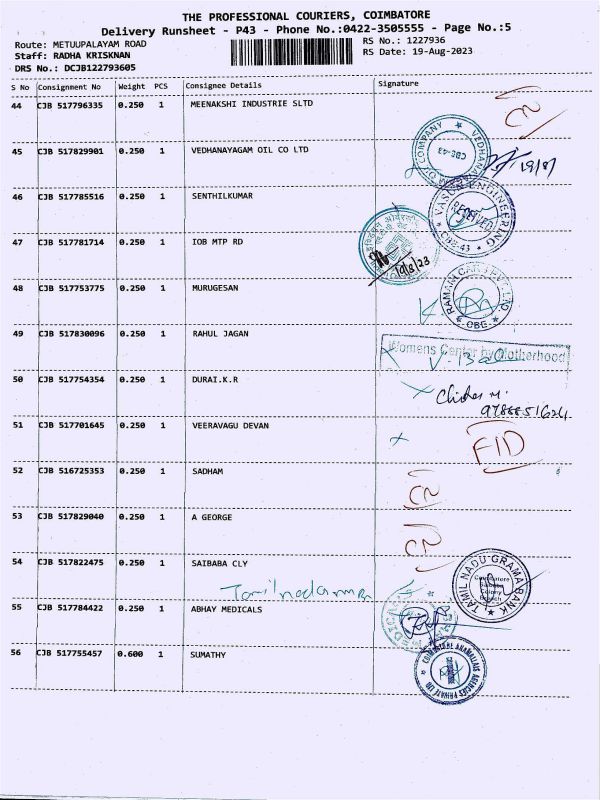 THE PROFESSIONAL COURIERS, COIMBATORE
Delivery Runsheet - P43 - Phone No.:0422-3505555 - Page No.:5
Route: METUUPALAYAM ROAD
RS No.: 1227936
Staff: RADHA KRISKNAN
RS Date: 19-Aug-2023
DRS No.: DCJB122793605
S No Consignment No Weight PCS Consignee Details Signature
44 CJB 517796335 0.250 1 MEENAKSHI INDUSTRIE SLTD
COMPANY VEDHANA CBE-43
45 CJB 517829901 0.250 1 VEDHANAYAGAM OIL CO LTD
46 CJB 517785516 0.250 1 SENTHILKUMAR
ENGINEERING RECEIVED CBE-43
47 CJB 517781714 0.250 1 IOB MTP RD
19/8/23
48 CJB 517753775 0.250 1 MURUGESAN
RAMANI CARS LTD CBE
49 CJB 517830096 0.250 1 RAHUL JAGAN
Womens Center by Motherhood
50 CJB 517754354 0.250 1 DURAI.K.R
51 CJB 517701645 0.250 1 VEERAVAGU DEVAN
52 CJB 516725353 0.250 1 SADHAM
53 CJB 517829040 0.250 1 A GEORGE
54 CJB 517822475 0.250 1 SAIBABA CLY
TAMIL NADU GRAMA BANK Coimbatore Saibaba Colony Branch
55 CJB 517784422 0.250 1 ABHAY MEDICALS
56 CJB 517755457 0.600 1 SUMATHY
COIMBATORE ANAMALLAIS AGENCIES PRIVATE LTD